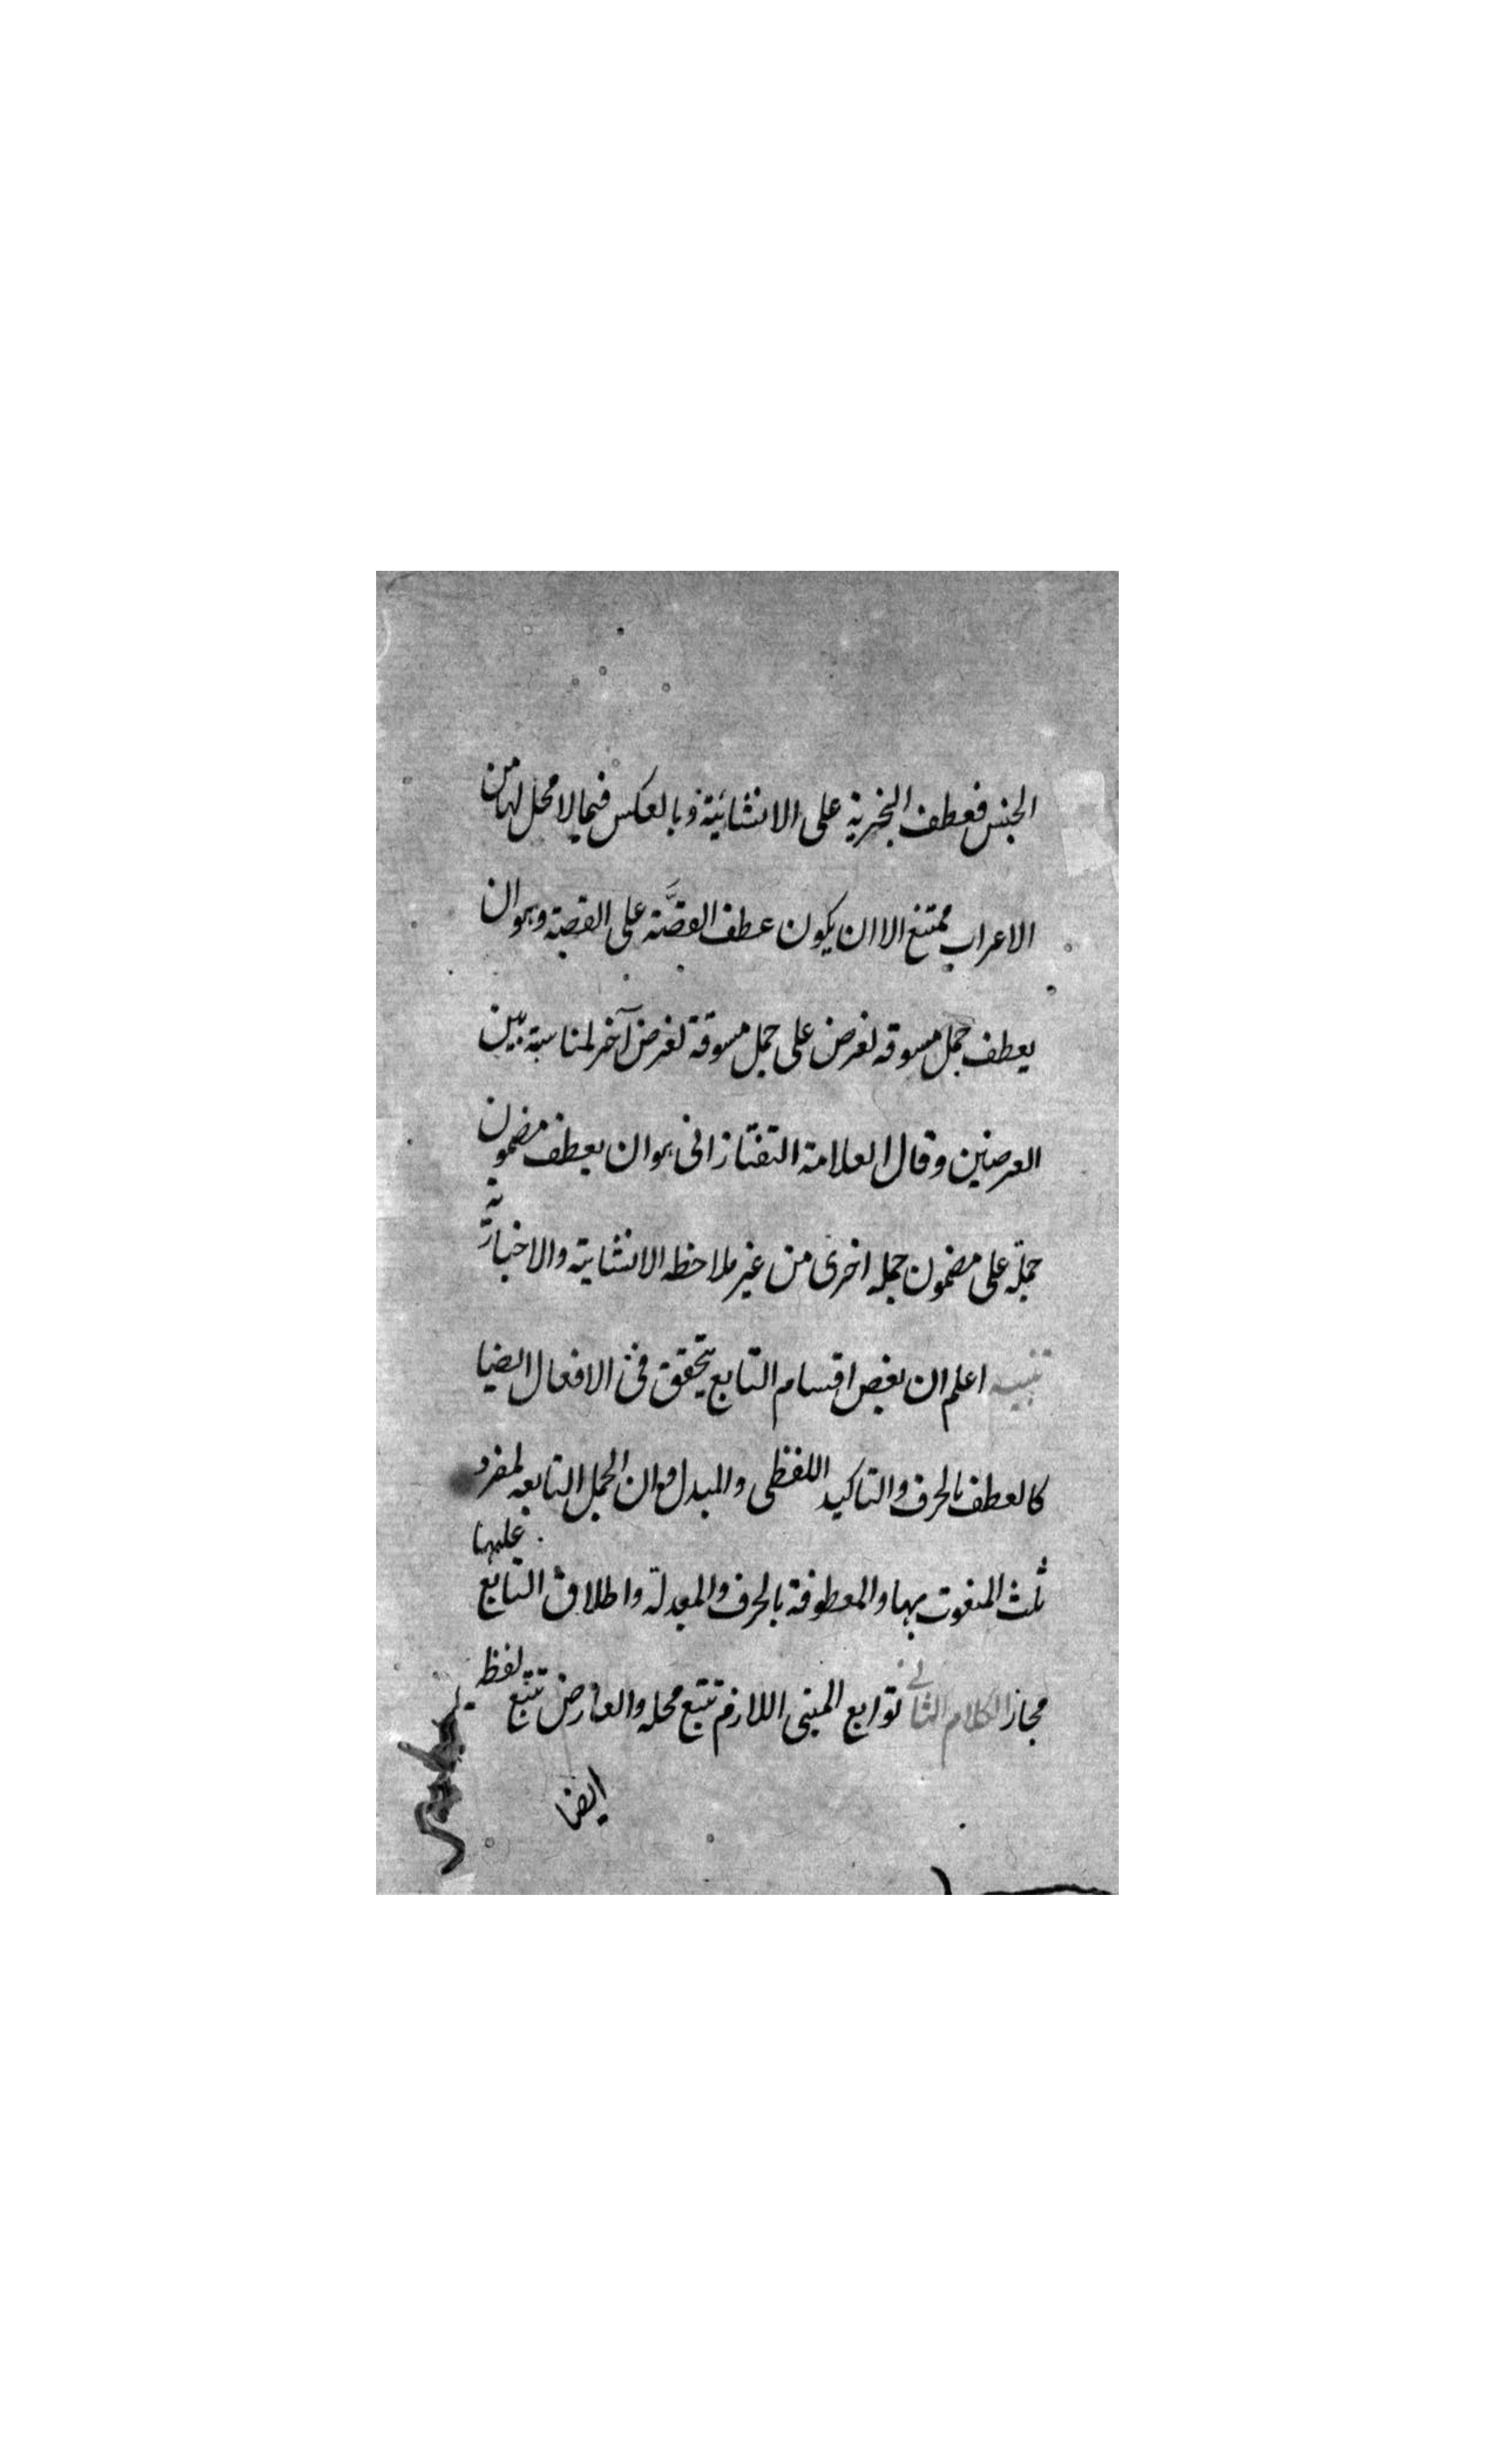 الجنس فعطف الخبرية على الانشائية وبالعكس فيما لا محل لها من
الاعراب ممتنع الا ان يكون عطف القصَّة على القصة وهو ان
يعطف جمل مسوقه لغرض على جمل مسوقة لغرض آخر لمناسبة بين
الغرضين وقال العلامة التفتازانى هو ان يعطف مضمون
جملة على مضمون جمله اخرى من غير ملاحظه الانشاية والاخبارية
تنبيه اعلم ان بعض اقسام التابع يتحقق فى الافعال ايضا
كالعطف بالحرف والتاكيد اللفظى والبدل وان الجمل التابعه لمفرد
ثلث المنعوت بها والمعطوفة بالحرف والمبدلة واطلاق التابع عليها
مجاز الكلام الثانى توابع المبنى اللازم تتبع محله والعارض تتبع لفظه
ايضا